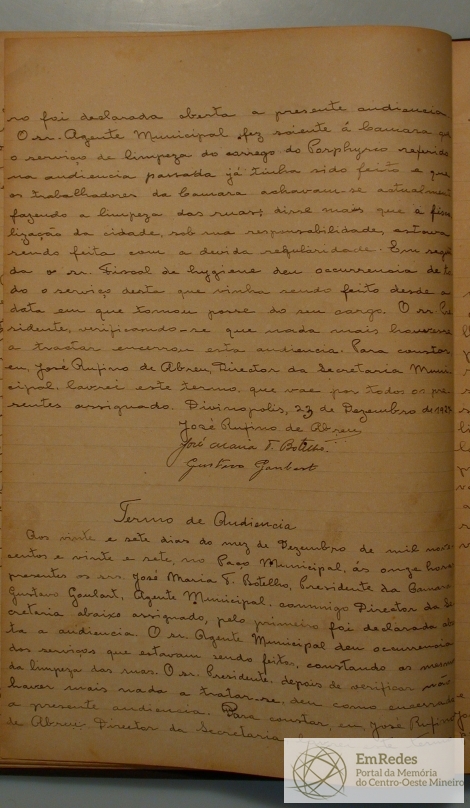 ro foi declarada aberta a presente audiencia
O sr. Agente Municipal fez sciente á Camara que
o serviço de limpeza do corrego do Porphyreo referido
na audiencia passada já tinha sido feito e que
os trabalhadores da Camara achavam-se actualment
fazendo a limpeza das ruas; disse mais que a fisca
lização da cidade, sob sua responsabilidade, estava
sendo feita com a devida regularidade. Em segui
da o sr. Fiscal de hygiene deu occurrencia de to
do o serviço deste que vinha sendo feito desde a
data em que tomou posse do seu cargo. O sr. Pre
sidente, verificando-se que nada mais houvesse
a tractar encerrou esta audiencia. Para constar,
eu, José Rufino de Abreu, Director da Secretaria Muni
cipal, lavrei este termo, que vae por todos os pre
sentes assignado. Divinopolis, 23 de Dezembro de
José Rufino de Abreu
José Maria T. Botelho.
Gustavo
Termo de Audiencia
Aos vinte e sete dias do mez de Dezembro de mil nove
centos e vinte e sete, no Paço Municipal, ás onze horas
presentes os srs. José Maria T. Botelho, Presidente da Camara
Gustavo Goulart, Agente Municipal, commigo Director da Se
creteria abaixo assignado, pelo primeiro foi declarada aber
ta a audiencia. O sr. Agente Municipal deu occurrencia
dos serviços que estavam sendo feitos, constando os mesmos
da limpeza das ruas. O sr. Presidente, depois de verificar não
haver mais nada a tratar-se, deu como encerrada
a presente audiencia. Para constar, eu, José Rufino
de Abreu Director da Secretaria
EmRedes
Portal da Memória
do Centro-Oeste Mineiro